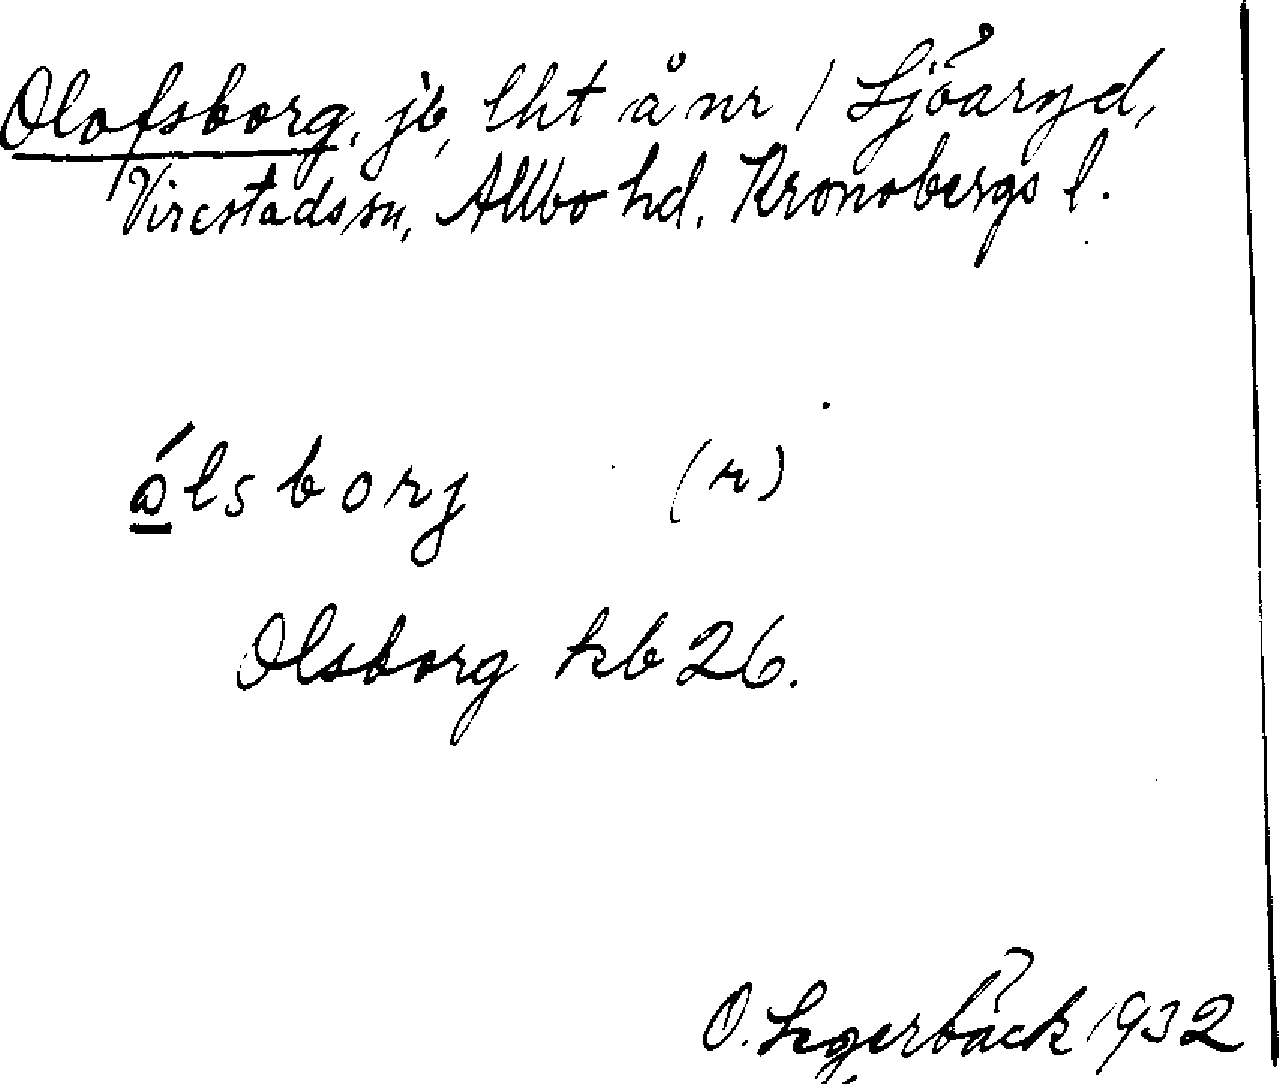 Olofsborg, jb, lht å nr 1 Sjöaryd,
Virestads sn, Allbo hd, Kronobergs l.
ólsborj (r)
Olsborg kb 26.
O. Segerbäck 1932